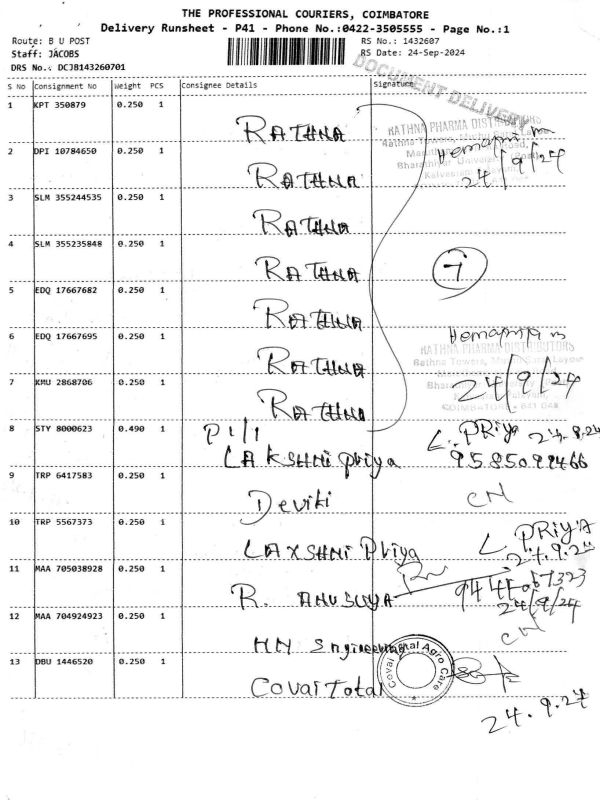 THE PROFESSIONAL COURIERS, COIMBATORE
Delivery Runsheet - P41 - Phone No.:0422-3505555 - Page No.:1
Route: B U POST
RS No.: 1432607
Staff: JACOBS
RS Date: 24-Sep-2024
DRS No.: DCJ8143260701
DOCUMENT DELIVERY
S No Consignment No Weight PCS Consignee Details Signature
1 KPT 350879 0.250 1 RATHNA
RATHNA PHARMA DISTRIBUTORS
Rathna Towers,
Hemapriya m
24/9/24
2 DPI 10784650 0.250 1 RATHNA
3 SLM 355244535 0.250 1 RATHNA
4 SLM 355235848 0.250 1 RATHNA
7
5 EDQ 17667682 0.250 1 RATHNA
6 EDQ 17667695 0.250 1 RATHNA
Hemapriya m
RATHNA PHARMA DISTRIBUTORS
Rathna Towers,
24/9/24
COIMBATORE - 641 046
7 KMU 2868706 0.250 1 RATHNA
8 STY 8000623 0.490 1 P1/1
LAKSHMI priya
L. PRiya 24.9.24
9585099466
9 TRP 6417583 0.250 1 Deviki
CN
10 TRP 5567373 0.250 1 LAXSHMI PRiya
L PRIYA
24.9.24
11 MAA 705038928 0.250 1 R. ANUSUYA
24/9/24
12 MAA 704924923 0.250 1 HN Engineering
CN
13 DBU 1446520 0.250 1 Covai Total
Covai Total Agro Care
24.9.24